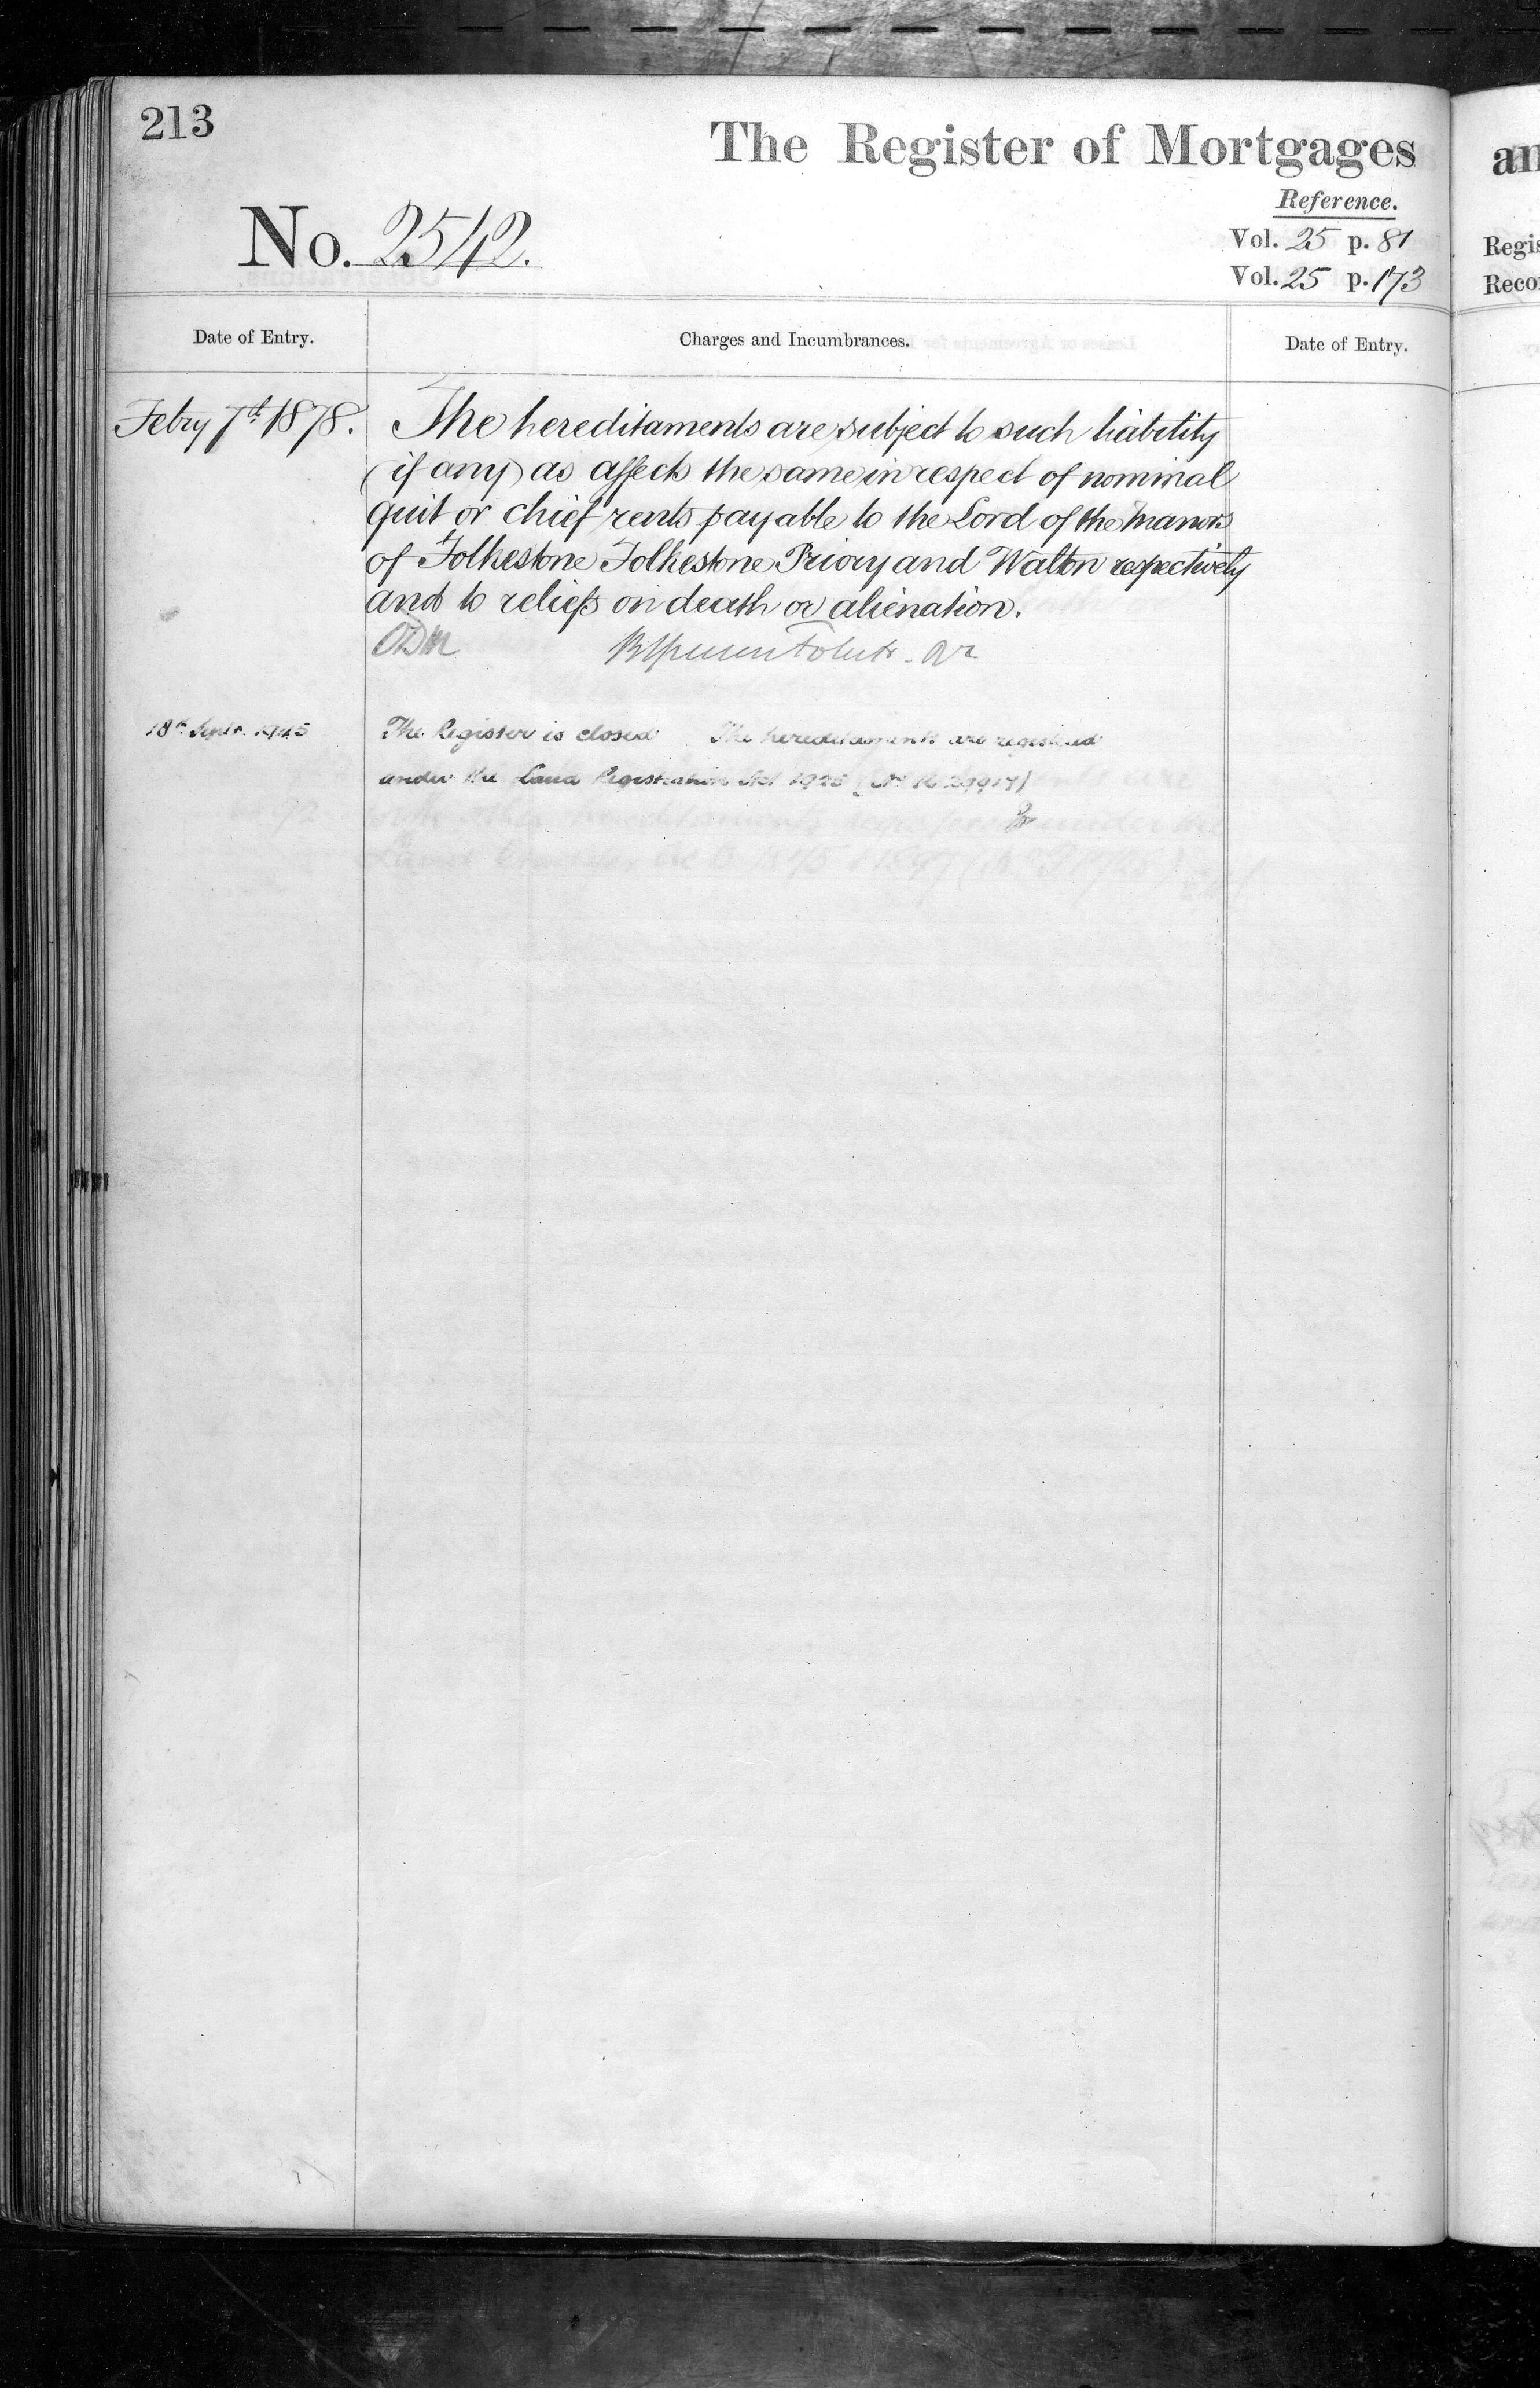 213
The Register of Mortgages
No. 2542.
Reference.
Vol. 25 p. 81
Vol. 25 p. 173
Date of Entry.
Charges and Incumbrances.
Date of Entry.
Febry 7th 1878.
The hereditaments are subject to such liability
(if any) as affects the same in respect of nominal
quit or chief rents payable to the Lord of the Manors
of Folkestone Folkestone Priory and Walton respectively
and to reliefs on death or alienation.
18th Septr. 1945
The Register is closed The hereditaments are registered
under the Land Registration Act 1925
an
Regis
Reco